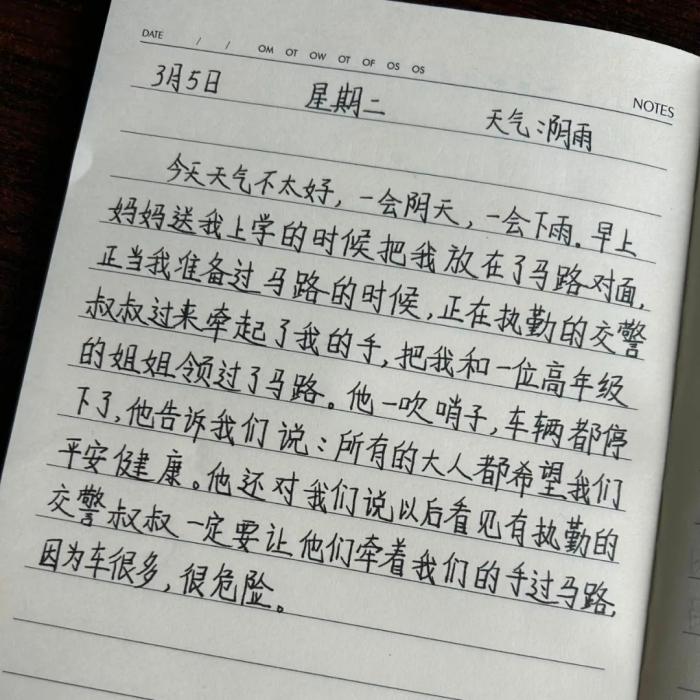 DATE / / OM OT OW OT OF OS OS
NOTES
3月5日 星期二 天气:阴雨
今天天气不太好，一会阴天，一会下雨。早上
妈妈送我上学的时候把我放在了马路对面，
正当我准备过马路的时候，正在执勤的交警
叔叔过来牵起了我的手，把我和一位高年级
的姐姐领过了马路。他一吹哨子，车辆都停
下了，他告诉我们说：所有的大人都希望我们
平安健康。他还对我们说以后看见有执勤的
交警叔叔一定要让他们牵着我们的手过马路，
因为车很多，很危险。